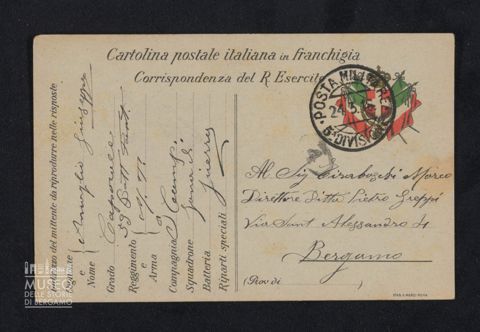 Cartolina postale italiana in franchigia
Corrispondenza del R. Esercito
POSTA MILITARE
24.5.
DIVISIONE
Al Sig. Tiraboschi Marco
Direttore Ditta Pietro Greppi
Via Sant Alessandro 4
Bergamo
(Prov. di
Indirizzo del mittente da riprodurre nelle risposte
Cognome e Nome Giuseppe
Grado Caporale
Reggimento e Arma
Compagnia
Squadrone Zona di
Batteria guerra
Riparti speciali
MUSEO
DELLE STORIE
DI BERGAMO